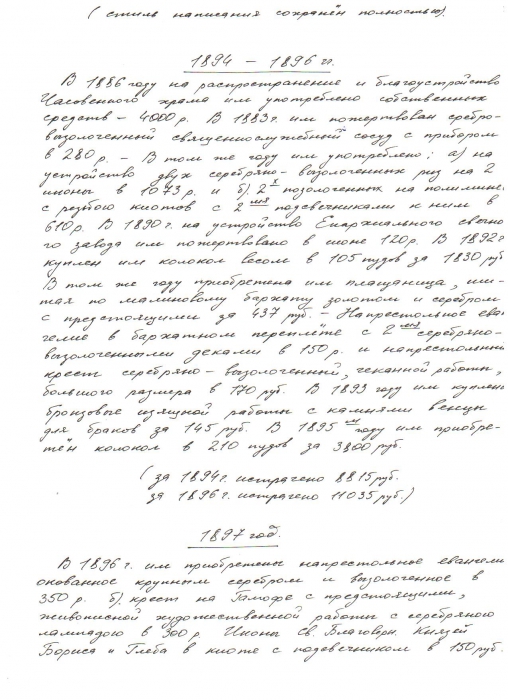 (стиль написания сохранён полностью).
1894 – 1896 гг.
В 1886 году на распространение и благоустройство
Часовенного храма им употреблено собственных
средств – 4000 р. В 1883 г. им пожертвован сребро-
вызолоченный священнослужебный сосуд с прибором
в 280 р. – В том же году им употреблено: а) на
устройство двух серебряно-вызолоченных риз на 2
иконы в 1073 р. и б) 2х позолоченных на полимине
с резбою киотов с 2мя подсвечниками к ним в
610 р. В 1890 г. на устройство Епархиального свечно
го завода им пожертвовано в июне 120 р. В 1892 г
куплен им колокол весом в 105 пудов за 1830 руб
В том же году приобретена им плащаница, ши-
тая по малиновому бархату золотом и серебром
с предстоящими за 437 руб. – Напрестольное еван
гелие в бархатном переплёте с 2мя серебряно-
вызолоченными деками в 150 р. и напрестольный
крест серебряно-вызолоченный, чеканной работы,
большого размера в 170 руб. В 1893 году им куплены
бронзовые изящной работы с камнями венцы
для браков за 145 руб. В 1895м году им приобре-
тён колокол в 210 пудов за 3800 руб.
(за 1894 г. истрачено 8815 руб.
за 1896 г. истрачено 11035 руб.)
1897 год.
В 1896 г. им приобретены напрестольное евангели
окованное крупным серебром и вызолоченное в
350 р. б) крест на Гамофе с предстоящими,
живописной художественной работы с серебряною
лампадою в 300 р. Иконы Св. Благоверн. Князей
Бориса и Глеба в киоте с подсвечником в 150 руб.